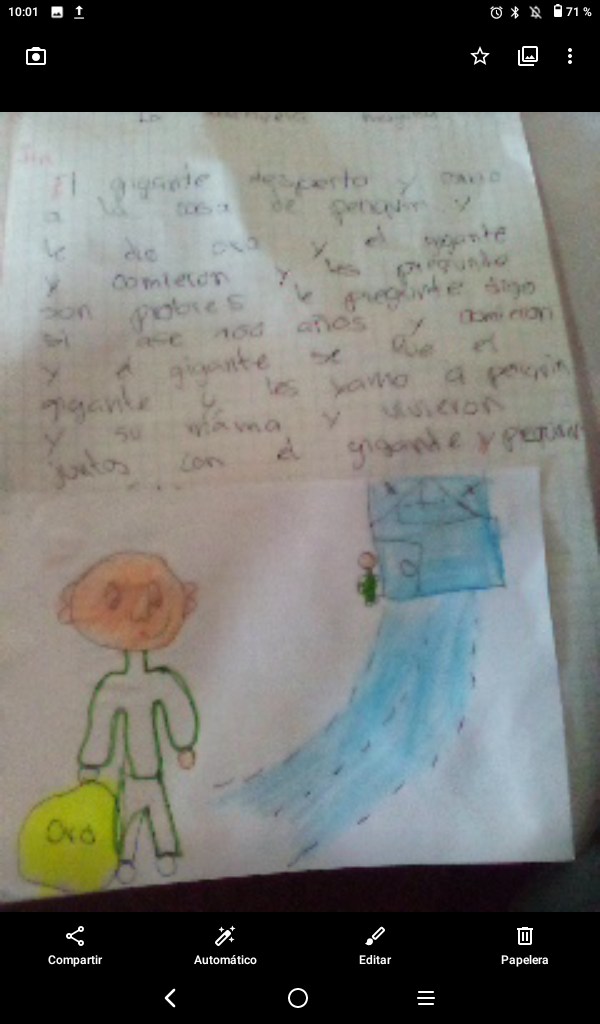 10:01
71 %
La
El gigante desperto y
a la casa de perquin y
le dio oro y el gigante
y comieron y les pregunto
son probres le pregunte digo
si ase 100 años y comieron
y el gigante se el
gigante y les yamo a perquin
y su máma y vivieron
juntos con el gigante y perquin
Oro
Compartir
Automático
Editar
Papelera